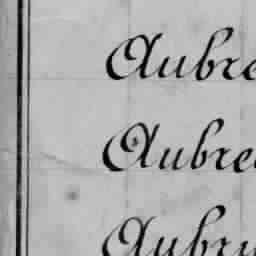 Aubre
Aubre
Aubry